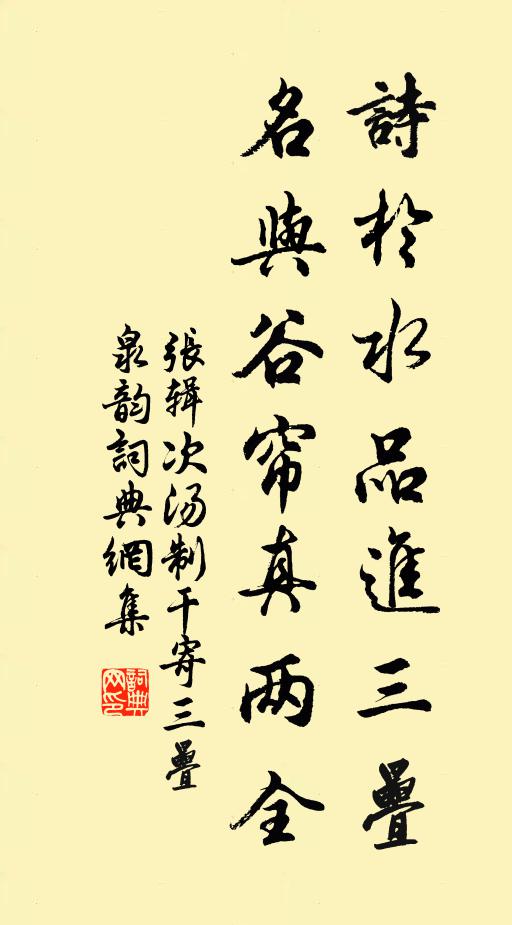 詩於水品進三疊
名與谷帘真两全
張辑次汤制干寄三疊
泉韵詞典網集
詞典
网印